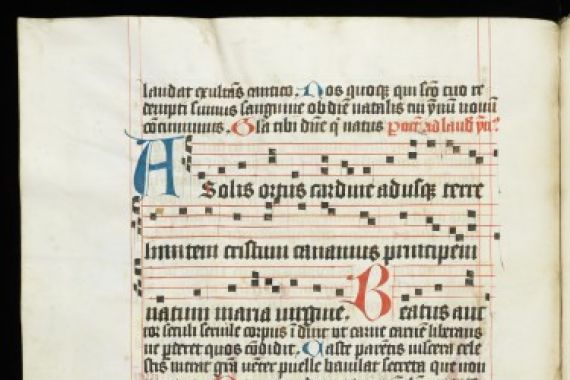 laudat exultās cantico. Nos quoqꝫ qui scō tuo re
dempti sumus sanguine ob diē natalis tui ymū nouū
cōcinimus. Gła tibi dn̄e q̇ natus
A Solis ortus cardine ad usqꝫ terre
limitem cristum canamus principem
natum maria uirgine. Beatus auc
tor seculi seruile corpus īduit ut carne carnē liberans
ne pderet quos cōdidit. Caste parētis uiscera cele
stis intrat gr̄a uēter puelle baiulat secreta que non